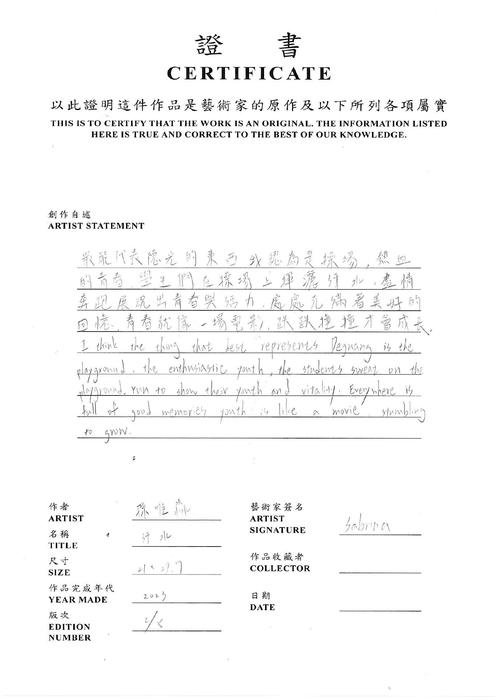 證 書
CERTIFICATE
以此證明這件作品是藝術家的原作及以下所列各項屬實
THIS IS TO CERTIFY THAT THE WORK IS AN ORIGINAL. THE INFORMATION LISTED
HERE IS TRUE AND CORRECT TO THE BEST OF OUR KNOWLEDGE.
創作自述
ARTIST STATEMENT
最能代表德光的東西我認為是操場,熱血
的青春,學生們在操場上揮灑汗水,盡情
奔跑展現出青春與活力,處處充滿著美好的
回憶,青春就像一場電影,跌跌撞撞才會成長.
I think the thing that best represents Deguang is the
playground. the enthusiastic youth, the students sweat on the
playground, run to show their youth and vitality. Everywhere is
full of good memories youth is like a movie stumbling
to grow.
作者
ARTIST
孫唯
名稱
TITLE
汗水
尺寸
SIZE
21 × 29.7
作品完成年代
YEAR MADE
2023
版次
EDITION
NUMBER
藝術家簽名
ARTIST
SIGNATURE
Sabrina
作品收藏者
COLLECTOR
日期
DATE